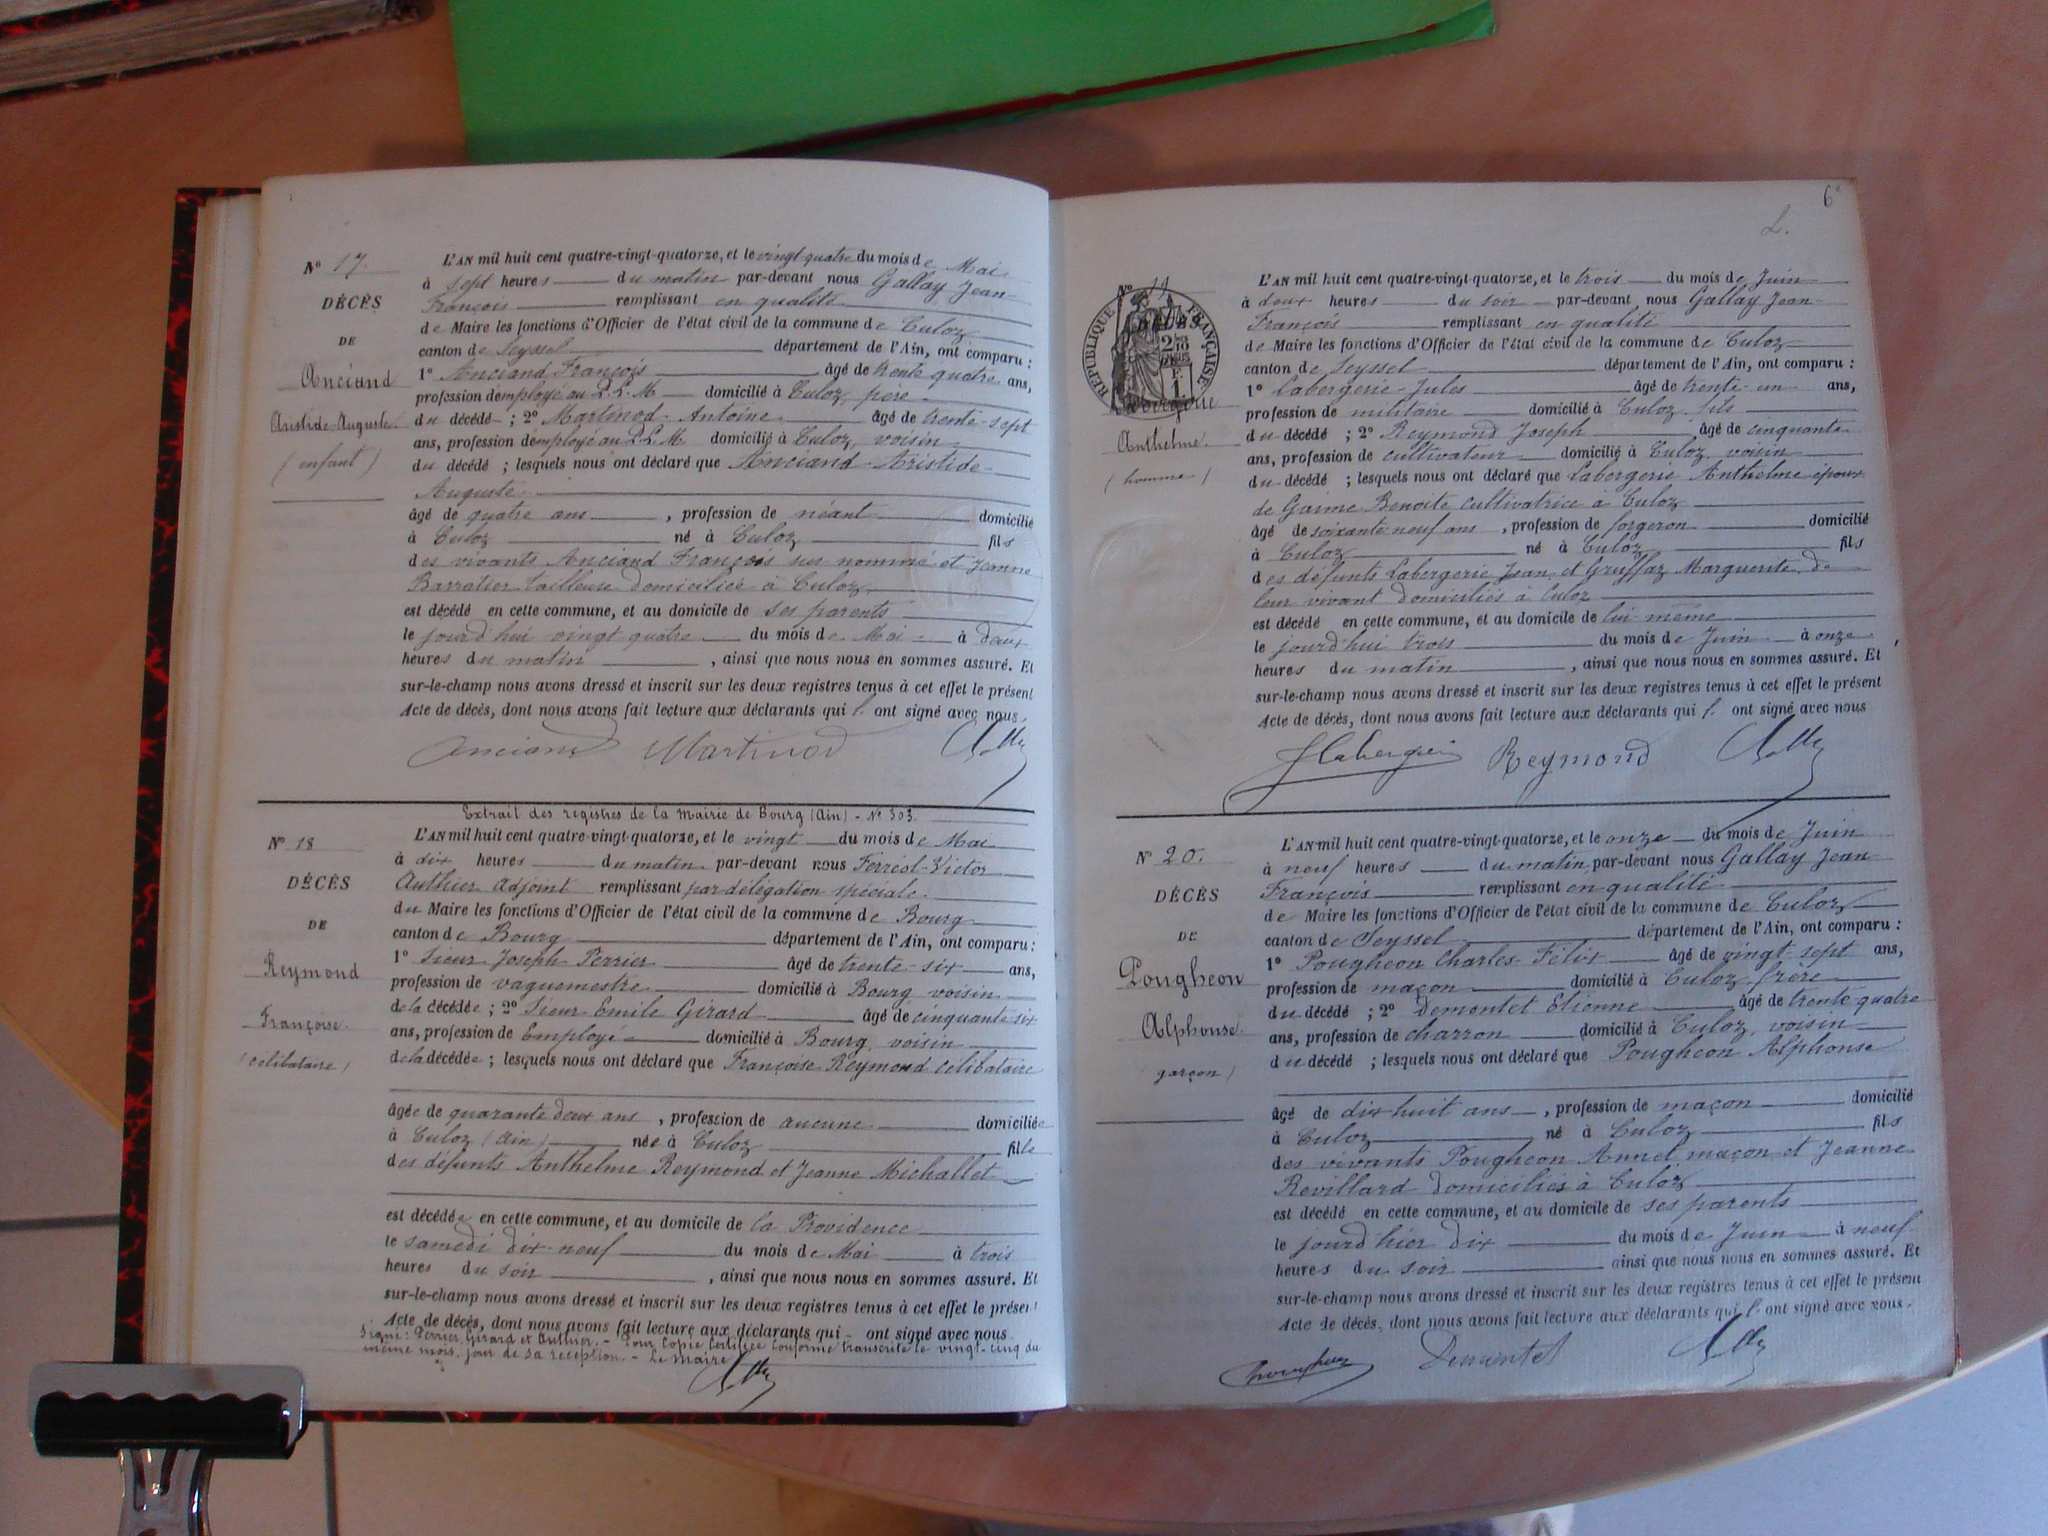 N° 17.
DÉCÈS
DE
Anciand
Aristide-Auguste
(enfant)
L'AN mil huit cent quatre-vingt-quatorze, et le vingt-quatre du mois de Mai
à sept heures du matin par-devant nous Gallay Jean-
François remplissant en qualité
de Maire les fonctions d'Officier de l'état civil de la commune de Culoz
canton de Seyssel département de l'Ain, ont comparu :
1° Anciand François âgé de trente quatre ans,
profession d'employé au P.L.M. domicilié à Culoz, père
du décédé ; 2° Martinod Antoine âgé de trente-sept
ans, profession d'employé au P.L.M. domicilié à Culoz, voisin
du décédé ; lesquels nous ont déclaré que Anciand Aristide
Auguste
âgé de quatre ans, profession de néant domicilié
à Culoz né à Culoz fils
des vivants Anciand François sus nommé et Jeanne
Barratier tailleuse domiciliée à Culoz
est décédé en cette commune, et au domicile de ses parents
le jourd'hui vingt quatre du mois de Mai à deux
heures du matin, ainsi que nous nous en sommes assuré. Et
sur-le-champ nous avons dressé et inscrit sur les deux registres tenus à cet effet le présent
Acte de décès, dont nous avons fait lecture aux déclarants qui ont signé avec nous.
Anciand Martinod
Extrait des registres de la Mairie de Bourg (Ain) - N° 303.
N° 18
DÉCÈS
DE
Reymond
Françoise
(célibataire)
L'AN mil huit cent quatre-vingt-quatorze, et le vingt du mois de Mai
à dix heures du matin par-devant nous Ferréol-Victor
Authier adjoint remplissant par délégation spéciale
du Maire les fonctions d'Officier de l'état civil de la commune de Bourg
canton de Bourg département de l'Ain, ont comparu :
1° Sieur Joseph Perrier âgé de trente-six ans,
profession de vaguemestre domicilié à Bourg voisin
de la décédée ; 2° Sieur Emile Girard âgé de cinquante six
ans, profession de Employé domicilié à Bourg, voisin
de la décédée ; lesquels nous ont déclaré que Françoise Reymond célibataire
âgée de quarante deux ans, profession de aucune domiciliée
à Culoz (Ain) née à Culoz fille
des défunts Anthelme Reymond et Jeanne Michallet
est décédée en cette commune, et au domicile de la Providence
le samedi dix-neuf du mois de Mai à trois
heures du soir, ainsi que nous nous en sommes assuré. Et
sur-le-champ nous avons dressé et inscrit sur les deux registres tenus à cet effet le présent
Acte de décès, dont nous avons fait lecture aux déclarants qui - ont signé avec nous.
Signé : Perrier, Girard et Authier. - Pour Copie Certifiée Conforme transcrite le vingt-cinq du
même mois, jour de sa réception. - Le Maire
6
N° 19
RÉPUBLIQUE FRANÇAISE
Anthelme
(homme)
L'AN mil huit cent quatre-vingt-quatorze, et le trois du mois de Juin
à deux heures du soir par-devant nous Gallay Jean-
François remplissant en qualité
de Maire les fonctions d'Officier de l'état civil de la commune de Culoz
canton de Seyssel département de l'Ain, ont comparu :
1° Labergerie Jules âgé de trente-un ans,
profession de militaire domicilié à Culoz fils
du décédé ; 2° Reymond Joseph âgé de cinquante
ans, profession de cultivateur domicilié à Culoz voisin
du décédé ; lesquels nous ont déclaré que Labergerie Anthelme époux
de Gaime Benoite cultivatrice à Culoz
âgé de soixante neuf ans, profession de forgeron domicilié
à Culoz né à Culoz fils
des défunts Labergerie Jean et Gruffaz Marguerite de
leur vivant domiciliés à Culoz
est décédé en cette commune, et au domicile de lui-même
le jourd'hui trois du mois de Juin à onze
heures du matin, ainsi que nous nous en sommes assuré. Et
sur-le-champ nous avons dressé et inscrit sur les deux registres tenus à cet effet le présent
Acte de décès, dont nous avons fait lecture aux déclarants qui ont signé avec nous
Reymond
N° 20.
DÉCÈS
DE
Pougheon
Alphonse
garçon)
L'AN mil huit cent quatre-vingt-quatorze, et le onze du mois de Juin
à neuf heures du matin, par-devant nous Gallay Jean
François remplissant en qualité
de Maire les fonctions d'Officier de l'état civil de la commune de Culoz
canton de Seyssel département de l'Ain, ont comparu :
1° Pougheon Charles Félix âgé de vingt sept ans,
profession de maçon domicilié à Culoz, frère
du décédé ; 2° Demontet Etienne âgé de trente quatre
ans, profession de charron domicilié à Culoz, voisin
du décédé ; lesquels nous ont déclaré que Pougheon Alphonse
âgé de dix huit ans, profession de maçon domicilié
à Culoz né à Culoz fils
des vivants Pougheon Annet maçon et Jeanne
Revillard domiciliés à Culoz
est décédé en cette commune, et au domicile de ses parents
le jourd'hier dix du mois de Juin à neuf
heures du soir ainsi que nous nous en sommes assuré. Et
sur-le-champ nous avons dressé et inscrit sur les deux registres tenus à cet effet le présent
Acte de décès, dont nous avons fait lecture aux déclarants qui ont signé avec nous.
Demontet